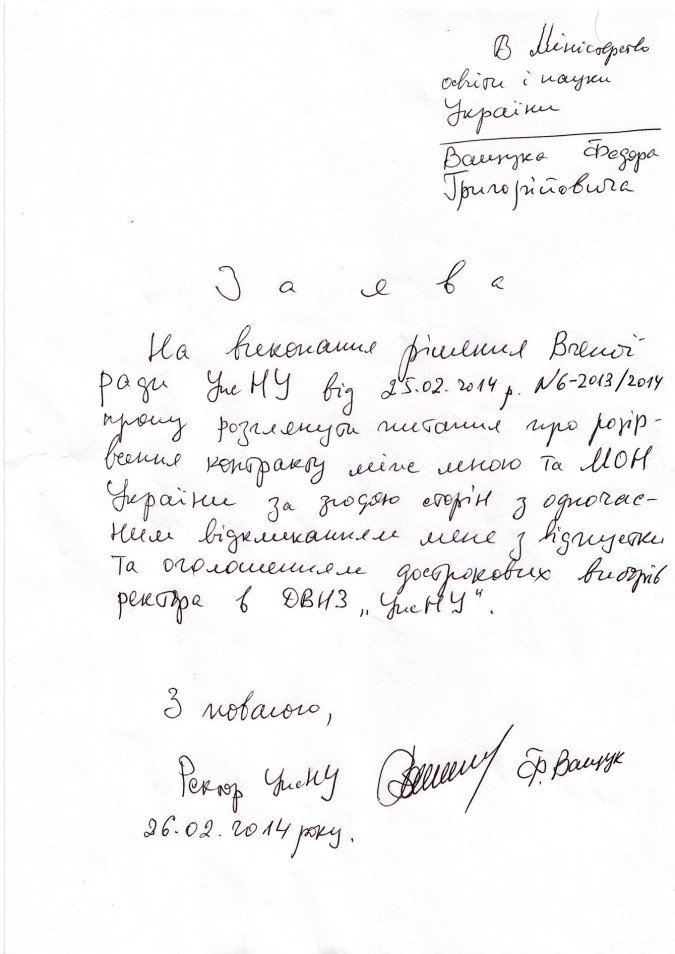 В Міністерство
освіти і науки
України
Ващука Федора
Григорійовича
З а я в а
На виконання рішення Вченої
ради УжНУ від 25.02.2014 р. N6-2013/2014
прошу розглянути питання про розір-
вання контракту між мною та МОН
України за згодою сторін з одночас-
ним відкликанням мене з відпустки
та оголошенням дострокових виборів
ректора в ДВНЗ „УжНУ“.
З повагою,
Ректор УжНУ Ф. Ващук
26.02.2014 року.